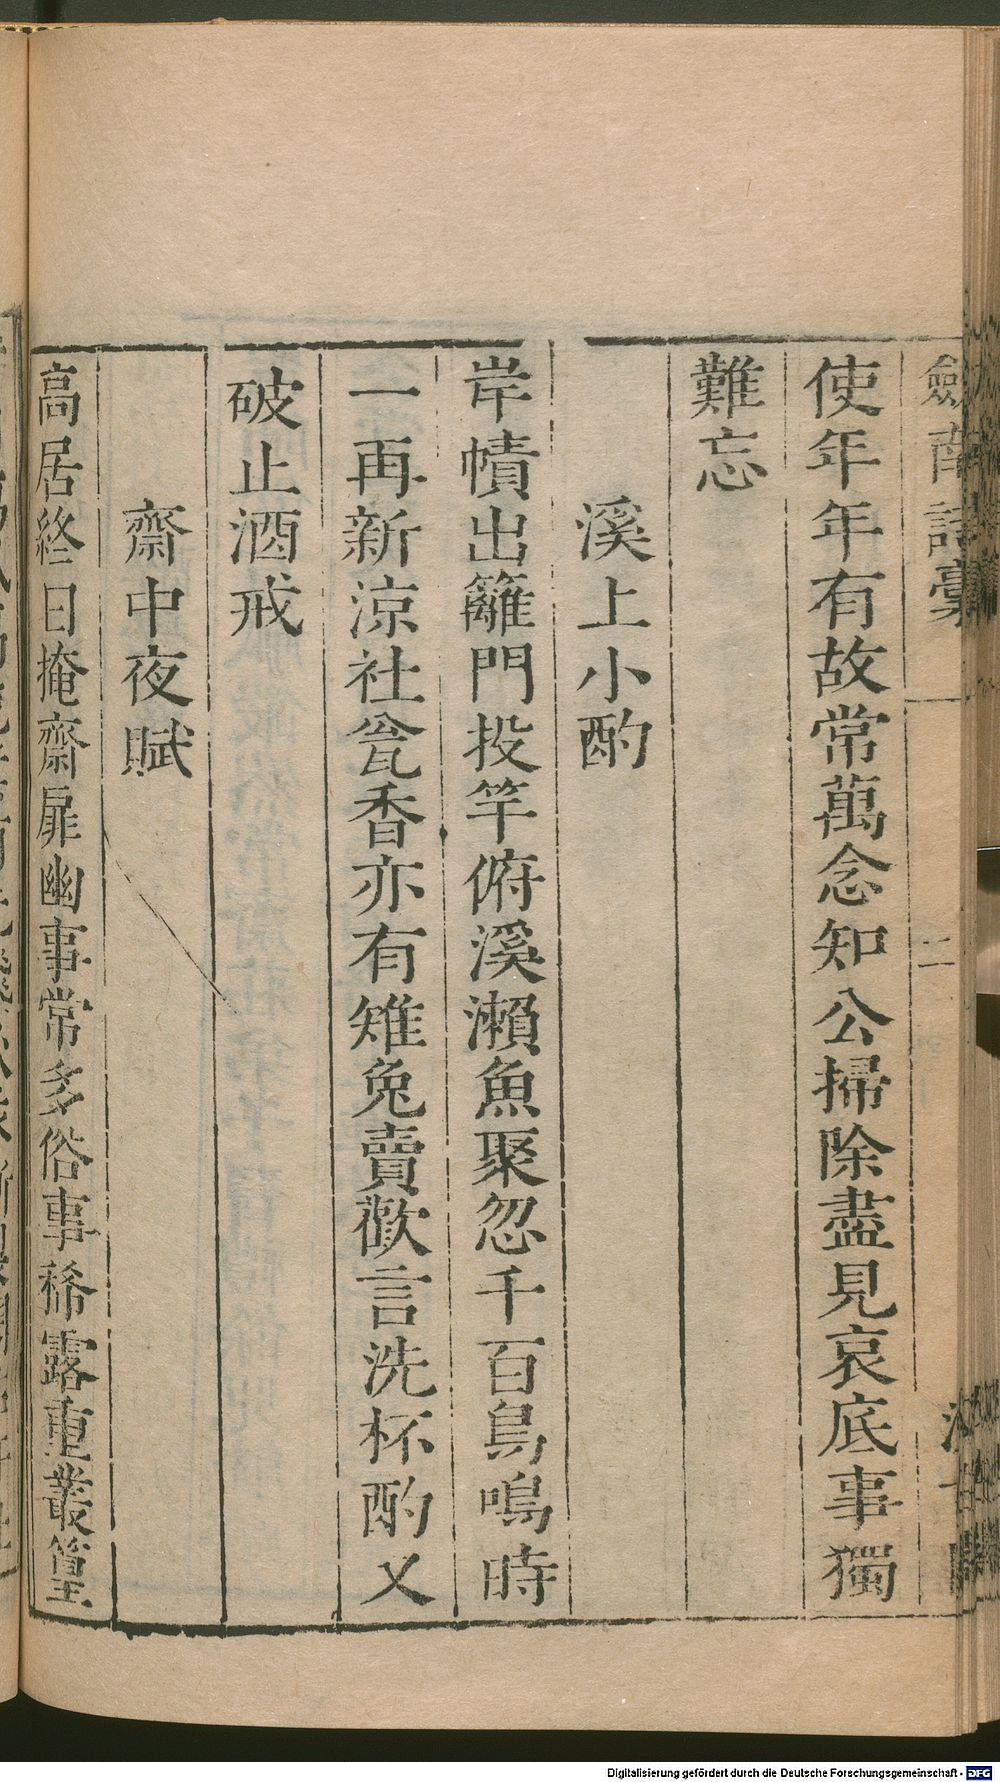 劍南詩稾
二
汲古閣
使年年有故常萬念知公掃除盡見哀底事獨
難忘
溪上小酌
岸幘出籬門投竿俯溪瀨魚聚忽千百鳥鳴時
一再新涼社瓮香亦有雉兔賣歡言洗杯酌又
破止酒戒
齋中夜賦
高居終日掩齋扉幽事常多俗事稀露重叢篁
Digitalisierung gefördert durch die Deutsche Forschungsgemeinschaft - DFG